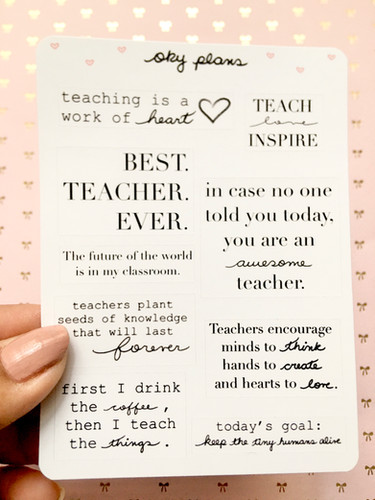 oky plans
teaching is a
work of heart
TEACH
love
INSPIRE
BEST.
TEACHER.
EVER.
in case no one
told you today,
you are an
awesome
teacher.
The future of the world
is in my classroom.
teachers plant
seeds of knowledge
that will last
forever
Teachers encourage
minds to think
hands to create
and hearts to love.
first I drink
the coffee,
then I teach
the things.
today's goal:
keep the tiny humans alive